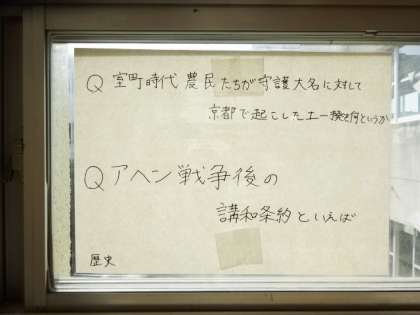 Q 室町時代 農民たちが守護大名に対して
京都で起こした土一揆を何というか
Q アヘン戦争後の
講和条約といえば
歴史